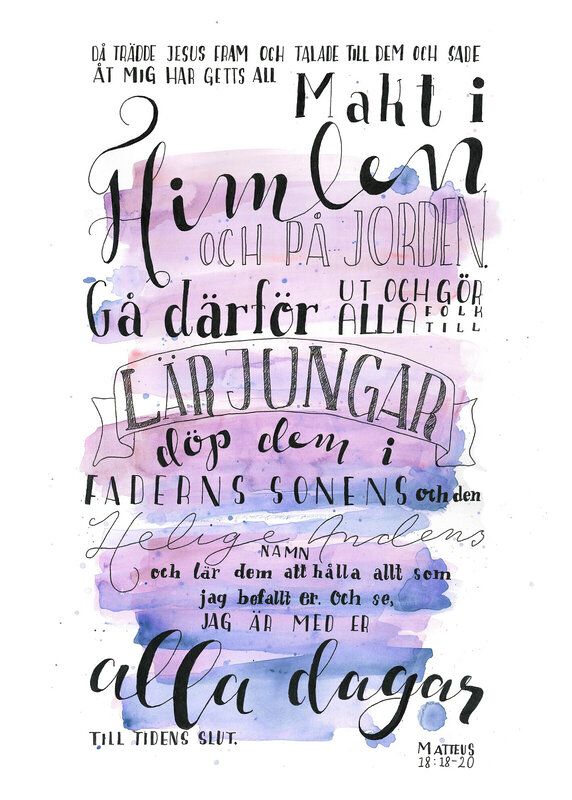 DÅ TRÄDDE JESUS FRAM OCH TALADE TILL DEM OCH SADE
ÅT MIG HAR GETTS ALL
Makt i
Himlen
OCH PÅ JORDEN.
Gå därför
UT OCH GÖR
ALLA FOLK
TILL
LÄRJUNGAR
döp dem i
FADERNS SONENS och den
Helige Andens
NAMN
och lär dem att hålla allt som
jag befallt er. Och se,
JAG ÄR MED ER
alla dagar
TILL TIDENS SLUT.
MATTEUS
18:18-20